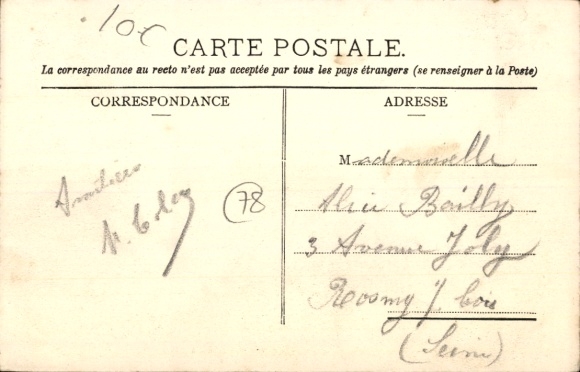 10€
CARTE POSTALE.
La correspondance au recto n'est pas acceptée par tous les pays étrangers (se renseigner à la Poste)
CORRESPONDANCE
ADRESSE
Amitiés
78
Mademoiselle
Alice Bailly
3 Avenue Joly
Rosny s/ bois
(Seine)